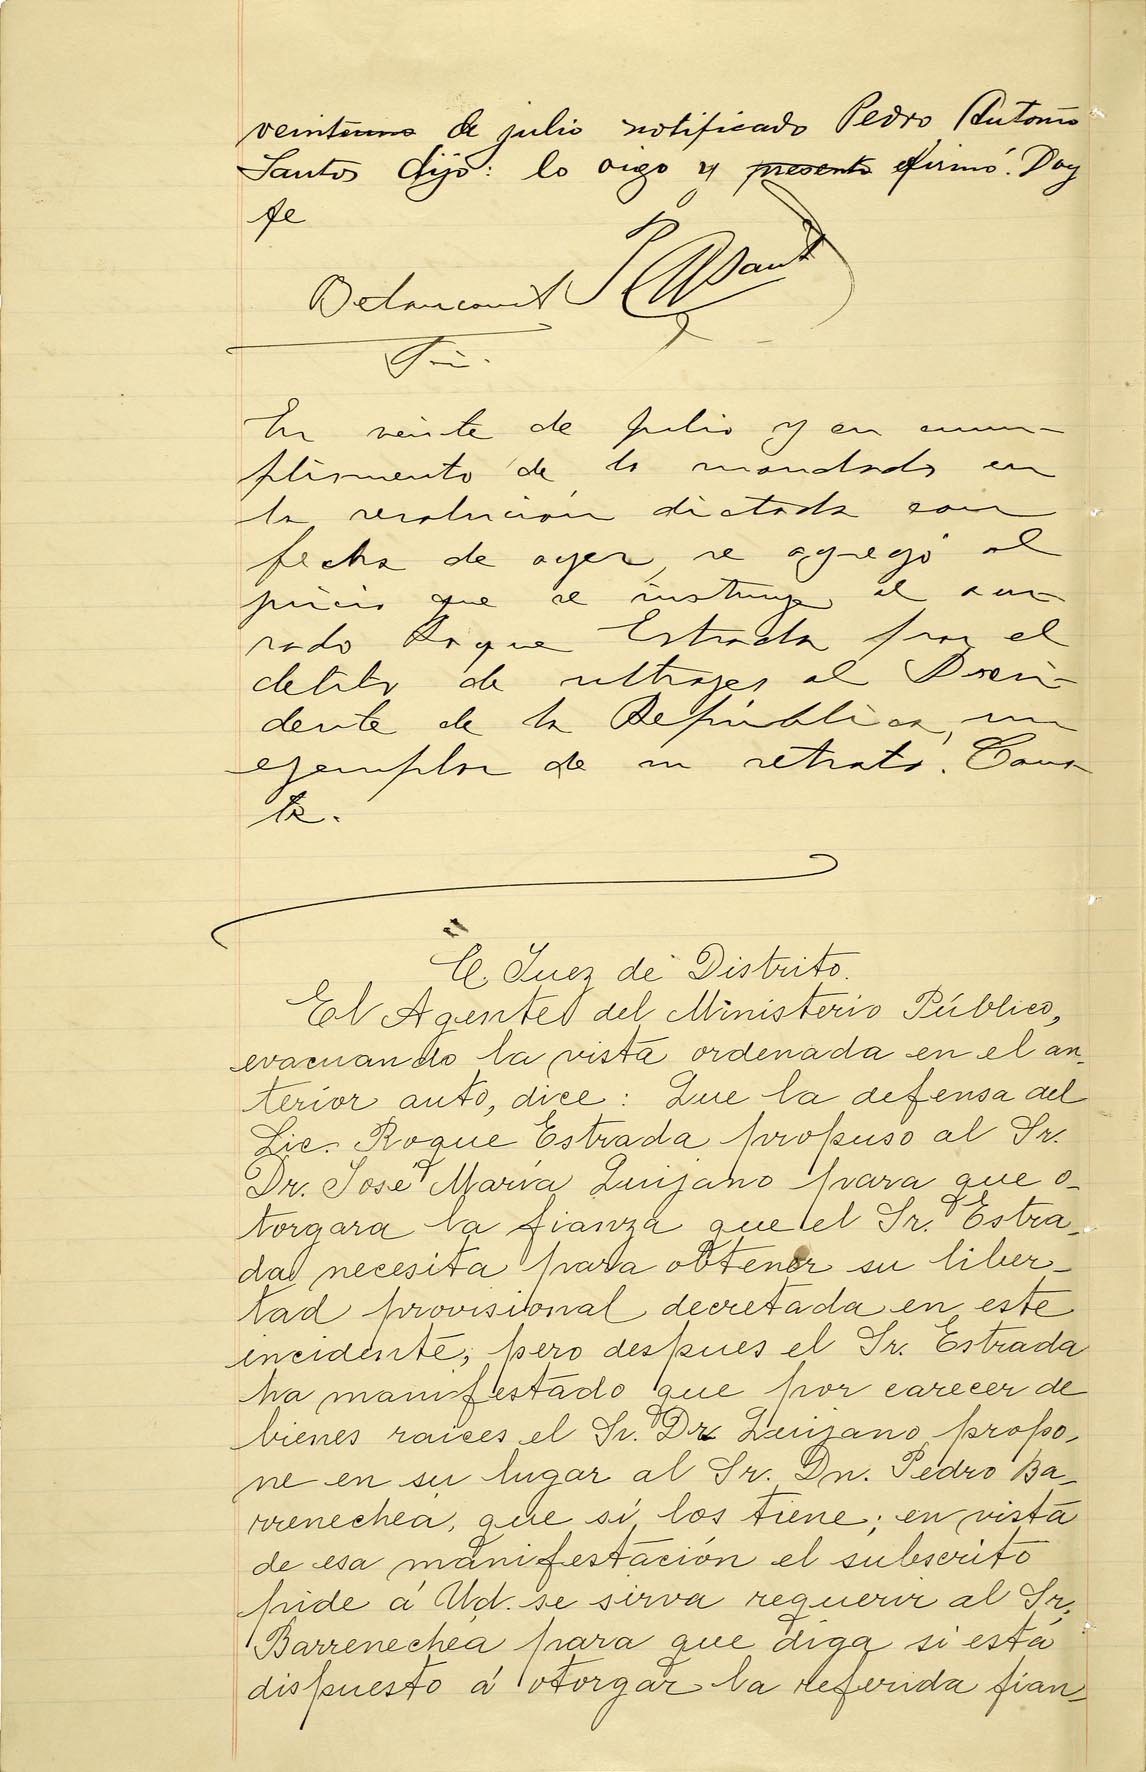 veintiuno de julio notificado Pedro Antonio
Santos dijo: lo oigo y presento firmó. Doy
fe
Betancourt P A Sant
En veinte de julio y en cum-
plimiento de lo mandado en
la resolución dictada con
fecha de ayer, se agregó al
juicio que se instruye al acu-
sado Roque Estrada por el
delito de ultrajes al Presi-
dente de la República, un
ejemplar de su retrato. Cons-
ta.
C. Juez de Distrito.
El Agente del Ministerio Público,
evacuando la vista ordenada en el an-
terior auto, dice: Que la defensa del
Lic. Roque Estrada propuso al Sr.
Dr. José María Quijano para que o-
torgara la fianza que el Sr. Estra-
da necesita para obtener su liber-
tad provisional decretada en este
incidente; pero despues el Sr. Estrada
ha manifestado que por carecer de
bienes raices el Sr. Dr. Quijano propo-
ne en su lugar al Sr. Dn. Pedro Ba-
rrenechea, que sí los tiene; en vista
de esa manifestación el subscrito
pide á Ud. se sirva requerir al Sr.
Barrenechea para que diga si está
dispuesto á otorgar la referida fian-